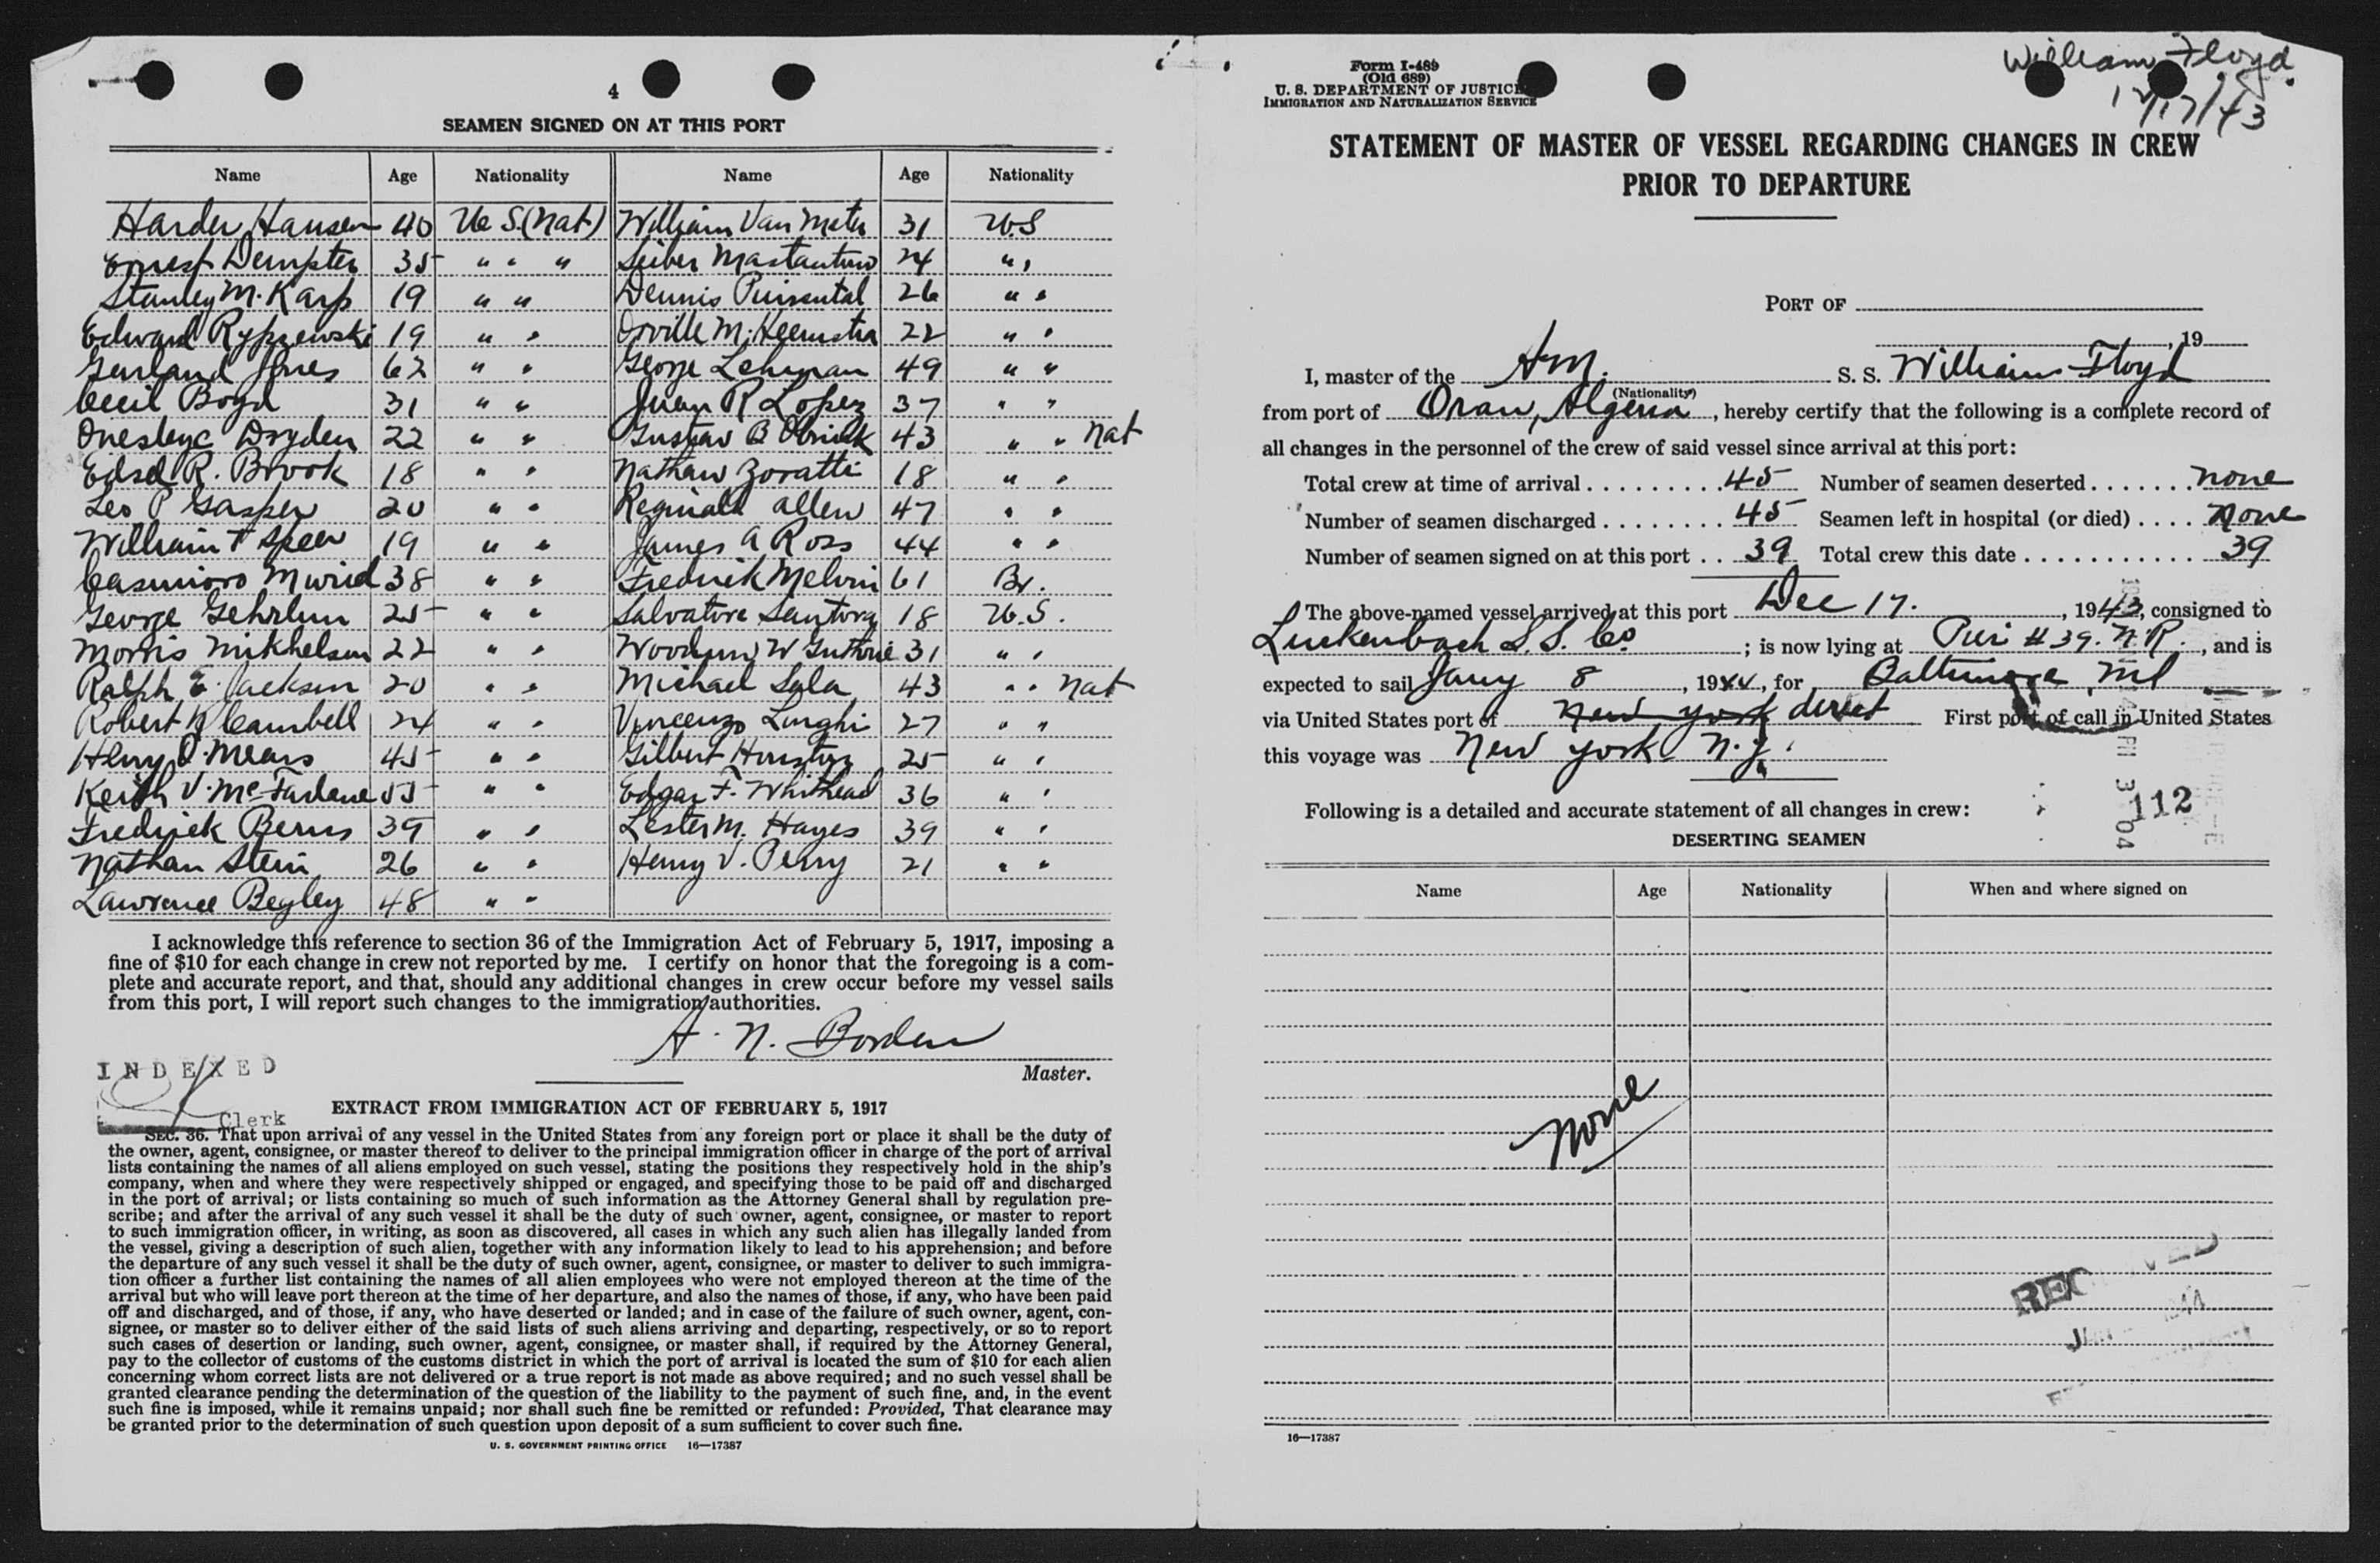 4
SEAMEN SIGNED ON AT THIS PORT
Name Age Nationality Name Age Nationality
Harder Hansen 40 U.S. (Nat) William Van Meter 31 U.S
Ernest Dempster 35 " " " 24 " "
Stanley M. Karp 19 " " Dennis 26 " "
Edward Rypzewski 19 " " Orville M. Heemstra 22 " "
Garland Jones 62 " " George Lehman 49 " "
Cecil Boyd 31 " " Juan R Lopez 37 " "
Dryden 22 " " Gustav B 43 " " Nat
Edsel R. Brook 18 " " Nathan Zoratti 18 " "
Leo P Gasper 20 " " Reginald Allen 47 " "
William T Speer 19 " " James A Ross 44 " "
Casimioro 38 " " Fredrick Melvin 61 Br.
George 25 " " Salvatore Santora 18 U.S.
Morris Mikhelson 22 " " Woodrow W Guthrie 31 " "
Ralph E. Jackson 20 " " Michael Sala 43 " " Nat
Robert Cambell 24 " " Vincenzo Longhi 27 " "
Henry Mears 45 " " Gilbert Houston 25 " "
Keith V. McFarlene 55 " " Edgar F. Whithead 36 " "
Fredrick Berns 39 " " Lester M. Hayes 39 " "
Nathan Stein 26 " " Henry V. Perry 21 " "
Lawrence Begley 48 " "
I acknowledge this reference to section 36 of the Immigration Act of February 5, 1917, imposing a
fine of $10 for each change in crew not reported by me. I certify on honor that the foregoing is a com-
plete and accurate report, and that, should any additional changes in crew occur before my vessel sails
from this port, I will report such changes to the immigration authorities.
A. N. Borden
Master.
INDEXED
Clerk
EXTRACT FROM IMMIGRATION ACT OF FEBRUARY 5, 1917
SEC. 36. That upon arrival of any vessel in the United States from any foreign port or place it shall be the duty of
the owner, agent, consignee, or master thereof to deliver to the principal immigration officer in charge of the port of arrival
lists containing the names of all aliens employed on such vessel, stating the positions they respectively hold in the ship's
company, when and where they were respectively shipped or engaged, and specifying those to be paid off and discharged
in the port of arrival; or lists containing so much of such information as the Attorney General shall by regulation pre-
scribe; and after the arrival of any such vessel it shall be the duty of such owner, agent, consignee, or master to report
to such immigration officer, in writing, as soon as discovered, all cases in which any such alien has illegally landed from
the vessel, giving a description of such alien, together with any information likely to lead to his apprehension; and before
the departure of any such vessel it shall be the duty of such owner, agent, consignee, or master to deliver to such immigra-
tion officer a further list containing the names of all alien employees who were not employed thereon at the time of the
arrival but who will leave port thereon at the time of her departure, and also the names of those, if any, who have been paid
off and discharged, and of those, if any, who have deserted or landed; and in case of the failure of such owner, agent, con-
signee, or master so to deliver either of the said lists of such aliens arriving and departing, respectively, or so to report
such cases of desertion or landing, such owner, agent, consignee, or master shall, if required by the Attorney General,
pay to the collector of customs of the customs district in which the port of arrival is located the sum of $10 for each alien
concerning whom correct lists are not delivered or a true report is not made as above required; and no such vessel shall be
granted clearance pending the determination of the question of the liability to the payment of such fine, and, in the event
such fine is imposed, while it remains unpaid; nor shall such fine be remitted or refunded: Provided, That clearance may
be granted prior to the determination of such question upon deposit of a sum sufficient to cover such fine.
U. S. GOVERNMENT PRINTING OFFICE 16—17387
William Floyd.
12/17/43
Form I-489
(Old 689)
U. S. DEPARTMENT OF JUSTICE
IMMIGRATION AND NATURALIZATION SERVICE
STATEMENT OF MASTER OF VESSEL REGARDING CHANGES IN CREW
PRIOR TO DEPARTURE
PORT OF
, 19
I, master of the Am. S. S. William Floyd
(Nationality)
from port of Oran, Algeria, hereby certify that the following is a complete record of
all changes in the personnel of the crew of said vessel since arrival at this port:
Total crew at time of arrival 45 Number of seamen deserted none
Number of seamen discharged 45 Seamen left in hospital (or died) none
Number of seamen signed on at this port 39 Total crew this date 39
The above-named vessel arrived at this port Dec 17., 1943, consigned to
Luckenbach S.S. Co. ; is now lying at Pier #39. N.R., and is
expected to sail Jany 8, 1944, for Baltimore, Md
via United States port of New York direct First port of call in United States
this voyage was New York N.Y.
Following is a detailed and accurate statement of all changes in crew:
112
DESERTING SEAMEN
Name Age Nationality When and where signed on
None
16—17387